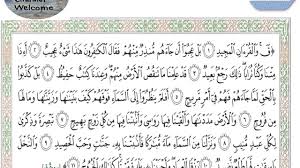 Welcome
قٓ وَالْقُرْءَانِ الْمَجِيدِ ١ بَلْ عَجِبُوٓا۟ أَن جَآءَهُم مُّنذِرٌ مِّنْهُمْ فَقَالَ الْكَٰفِرُونَ هَٰذَا شَىْءٌ عَجِيبٌ ٢ أَءِذَا
مِتْنَا وَكُنَّا تُرَابًا ذَٰلِكَ رَجْعٌۢ بَعِيدٌ ٣ قَدْ عَلِمْنَا مَا تَنقُصُ الْأَرْضُ مِنْهُمْ وَعِندَنَا كِتَٰبٌ حَفِيظٌۢ ٤ بَلْ كَذَّبُوا۟
بِالْحَقِّ لَمَّا جَآءَهُمْ فَهُمْ فِىٓ أَمْرٍ مَّرِيجٍ ٥ أَفَلَمْ يَنظُرُوٓا۟ إِلَى السَّمَآءِ فَوْقَهُمْ كَيْفَ بَنَيْنَٰهَا وَزَيَّنَّٰهَا وَمَا لَهَا
مِن فُرُوجٍ ٦ وَالْأَرْضَ مَدَدْنَٰهَا وَأَلْقَيْنَا فِيهَا رَوَٰسِىَ وَأَنۢبَتْنَا فِيهَا مِن كُلِّ زَوْجٍۭ بَهِيجٍ ٧ تَبْصِرَةً وَذِكْرَىٰ
لِكُلِّ عَبْدٍ مُّنِيبٍ ٨ وَنَزَّلْنَا مِنَ السَّمَآءِ مَآءً مُّبَٰرَكًا فَأَنۢبَتْنَا بِهِۦ جَنَّٰتٍ وَحَبَّ الْحَصِيدِ ٩ وَالنَّخْلَ